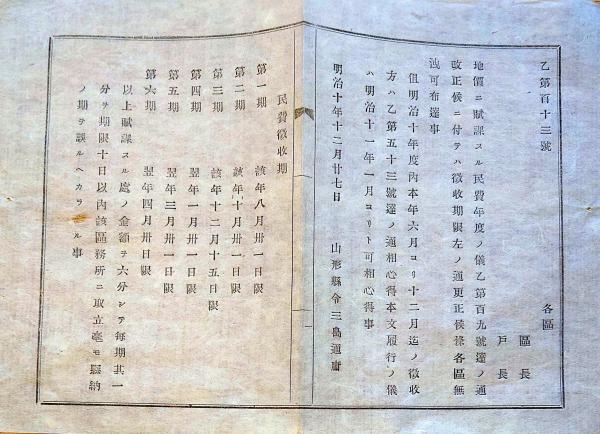 乙第百十三號
各區
區長
戸長
地價ニ賦課スル民費年度ノ儀乙第百九號達ノ通
改正候ニ付テハ徴收期限左ノ通更正候條各區無
洩可布達事
但明治十年度內本年六月ヨリ十二月迄ノ徴收
方ハ乙第五十三號達ノ通相心得本文履行ノ儀
ハ明治十一年一月ヨリト可相心得事
明治十年十二月廿七日
山形縣令三島通庸
民費徴收期
第一期 該年八月卅一日限
第二期 該年十月卅一日限
第三期 該年十二月十五日限
第四期 翌年一月卅一日限
第五期 翌年三月卅一日限
第六期 翌年四月卅日限
以上賦課スル處ノ金額ヲ六分シテ每期其一
分ヲ期限十日以內該區務所ニ取立毫モ縣納
ノ期ヲ誤ルヘカラサル事